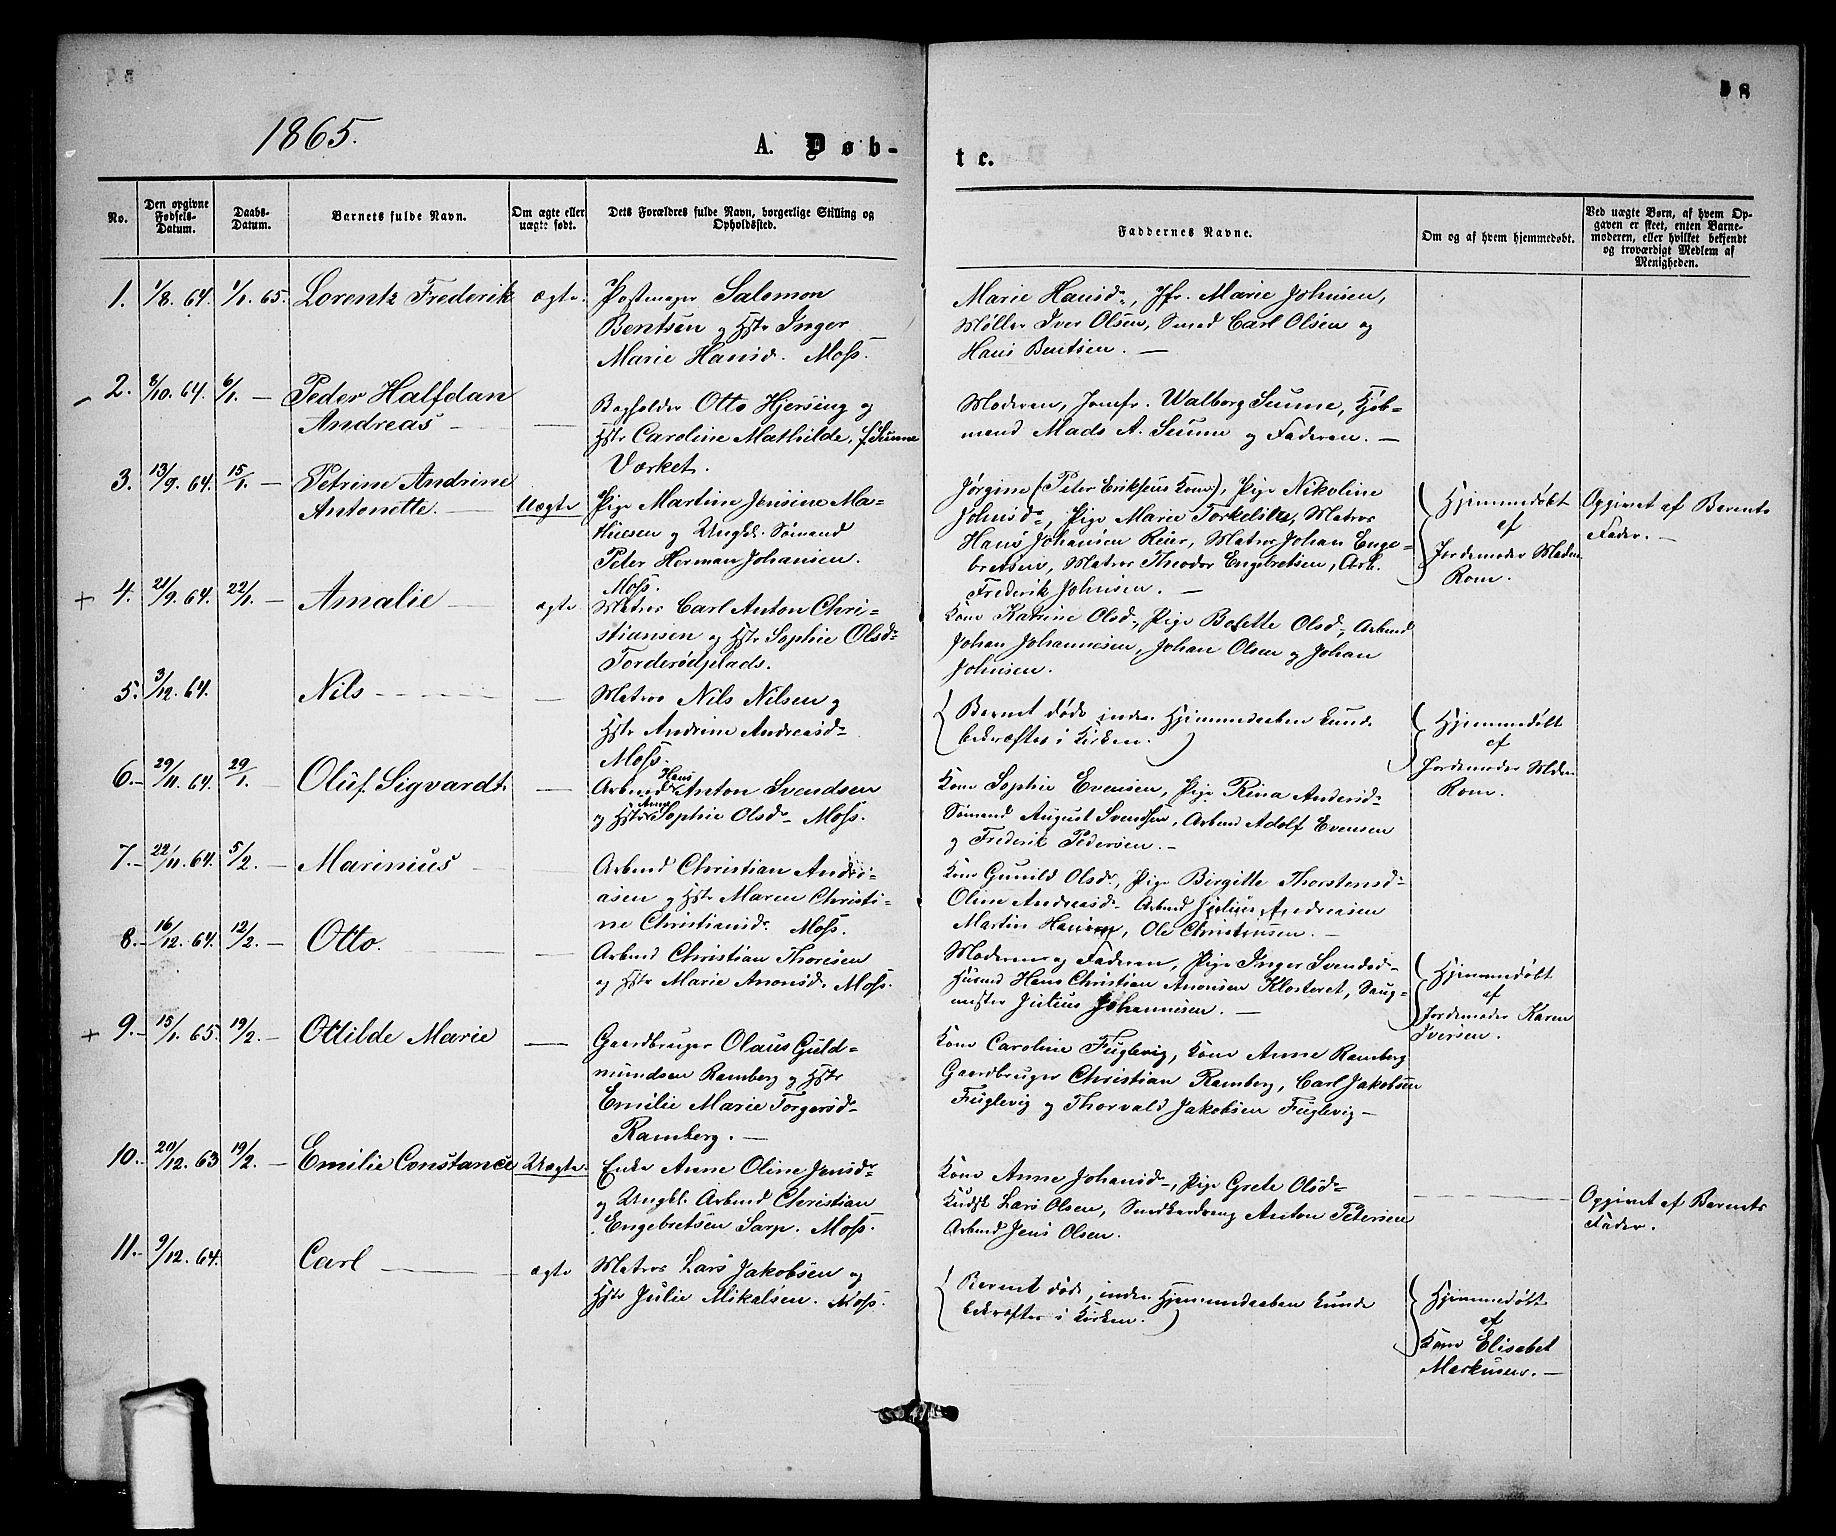 58
1865.
A. Døb-
te.
No.
Den opgivne Fødsels-Datum.
Daabs-Datum.
Barnets fulde Navn.
Om ægte eller uægte født.
Dets Forældres fulde Navn, borgerlige Stilling og Opholdssted.
Faddernes Navne.
Om og af hvem hjemmedøbt.
Ved uægte Børn, af hvem Opgaven er skeet, enten Barnemoderen, eller hvilket bekjendt og troværdigt Medlem af Menigheden.
1. 1/8. 64. 1/1. 65. Lorentz Frederik ægte.
Salomon
Bentsen og Hstr Inger
Marie Hansd. Moss.
Marie Hansd., Jfr. Marie Johnsen,
Møller Iver Olsen, Smed Carl Olsen og
Hans Bentsen. —
2. 8/10. 64. 6/1. — Peder Halfdan
Andreas —
Bogholder Otto Hjersing og
Hstr Caroline Mathilde, f. Sunne
Værket.
Moderen, Jomfr. Walborg Sunne, Kjøb-
mand Mads A. Sunne og Faderen. —
3. 13/9. 64. 15/1. — Petrine Andrine
Antonette. — Uægte
Pige Martine Jensine Ma-
thiesen og Ungk. Sømand
Peter Herman Johansen.
Moss.
Jørgine (Peter Eriksens Kone), Pige Nikoline
Johnsd., Pige Marie Torkelsen, Matros
Hans Johansen Reier, Matros Johan Enge-
bretsen, Matros Theodor Engebretsen, Arb.
Frederik Johnsen. —
Hjemmedøbt
af
Jordemoder Madm
Rom.
Opgivet af Barnets
Fader. —
+ 4. 21/9. 64. 22/1. — Amalie — ægte
Matros Carl Anton Chri-
stiansen og Hstr Sophie Olsd.
Torderødplads.
Kone Katrine Olsd., Pige Bolette Olsd., Arbmd
Johan Johannesen, Johan Olsen og Johan
Johnsen.
5. 3/12. 64. Nils — —
Matros Nils Nilsen og
Hstr Andrine Andreasd.
Moss.
(Barnet døde, inden Hjemmedaaben kunde
bekræftes i Kirken.)
Hjemmedøbt
af
Jordemoder Mdm
Rom.
6. — 29/11. 64. 29/1. — Oluf Sigvardt. —
Arbmd Hans Anton Svendsen
og Hstr Anna Sophie Olsd. Moss.
Kone Sophie Evensen, Pige Rina Andersd.
Sømand August Svendsen, Arbmd Adolf Evensen
og Frederik Pedersen. —
7. — 22/11. 64. 5/2. — Marinius —
Arbmd Christian Andre-
asen og Hstr Maren Christi-
ne Christiansd. Moss.
Kone Gunild Olsd., Pige Birgitte Thorstensd.
Oline Andreasd. Arbmd Julius Andreasen
Martin Hansen, Ole Christensen. —
8. — 16/12. 64. 12/2. — Otto. —
Arbmd Christian Thoresen
og Hstr Marie Aronsd. Moss.
Moderen og Faderen, Pige Inger Svendsd.
Husmd Hans Christian Aronsen Klosteret, Saug-
mester Julius Johannesen. —
Hjemmedøbt
af
Jordemoder Karen
Iversen.
+ 9. — 15/1. 65. 19/2. — Ottilde Marie —
Gaardbruger Olaus Guld-
mundsen Ramberg og Hstr
Emilie Marie Torgersd.
Ramberg. —
Kone Caroline Fuglevig, Kone Anne Ramberg
Gaardbruger Christian Ramberg, Carl Jakobsen
Fuglevig og Thorvald Jakobsen Fuglevig —
10. — 20/12. 63 19/2. — Emilie Constance Uægte.
Enke Anne Oline Jensd.
og Ungk. Arbmd Christian
Engebretsen Sarp. Moss.
Kone Anne Johansd., Pige Grete Olsd.
Kudsk Lars Olsen, Snedkerdreng Anton Petersen
Arbmd Jens Olsen.
Opgivet af Barnets
Fader.
11. — 9/12. 64. Carl — ægte
Matros Lars Jakobsen og
Hstr Julie Mikalsen. Moss.
(Barnet døde, inden Hjemmedaaben kunde
bekræftes i Kirken.)
Hjemmedøbt
af
Kone Elisabet
Markusen. —